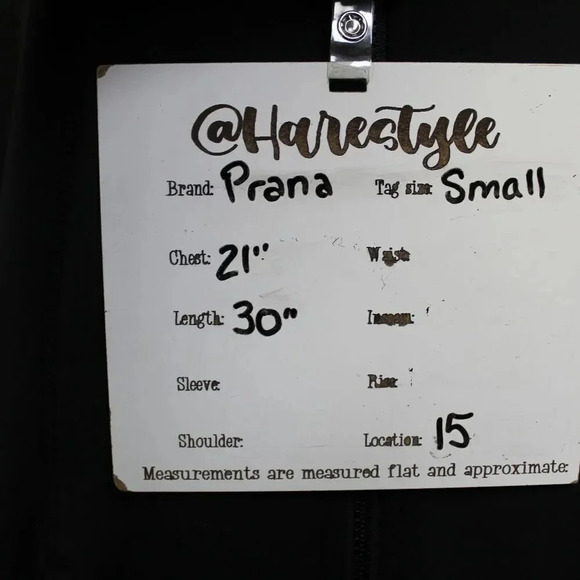 @Harestyle
Brand: Prana Tag size: Small
Chest: 21" Waist:
Length: 30" Inseam:
Sleeve: Rise:
Shoulder: Location: 15
Measurements are measured flat and approximate.